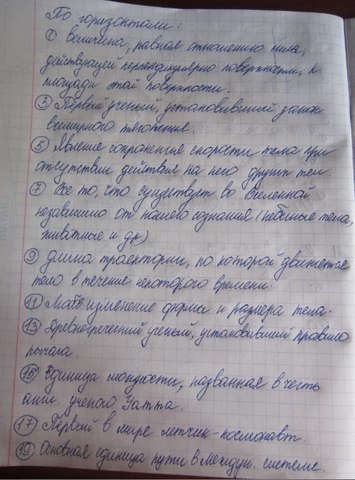 По горизонтали:
① величина, равная отношению силы,
действующей перпендикулярно поверхности, к
площади этой поверхности.
③ Первый ученый, установивший закон
всемирного тяготения.
⑤ Явление сохранения скорости тела при
отсутствии действия на него других тел.
⑦ Все то, что существует во вселенной
независимо от нашего сознания (небесные тела,
животные и др)
⑨ длина траектории, по которой движется
тело в течение некоторого времени.
⑪ Любое изменение формы и размера тела.
⑬ Древнегреческий ученый, установивший правило
рычага
⑮ Единица мощности, названная в честь
англ. ученого Уатта.
⑰ Первый в мире летчик-космонавт.
⑲ Основная единица пути в междун. системе.